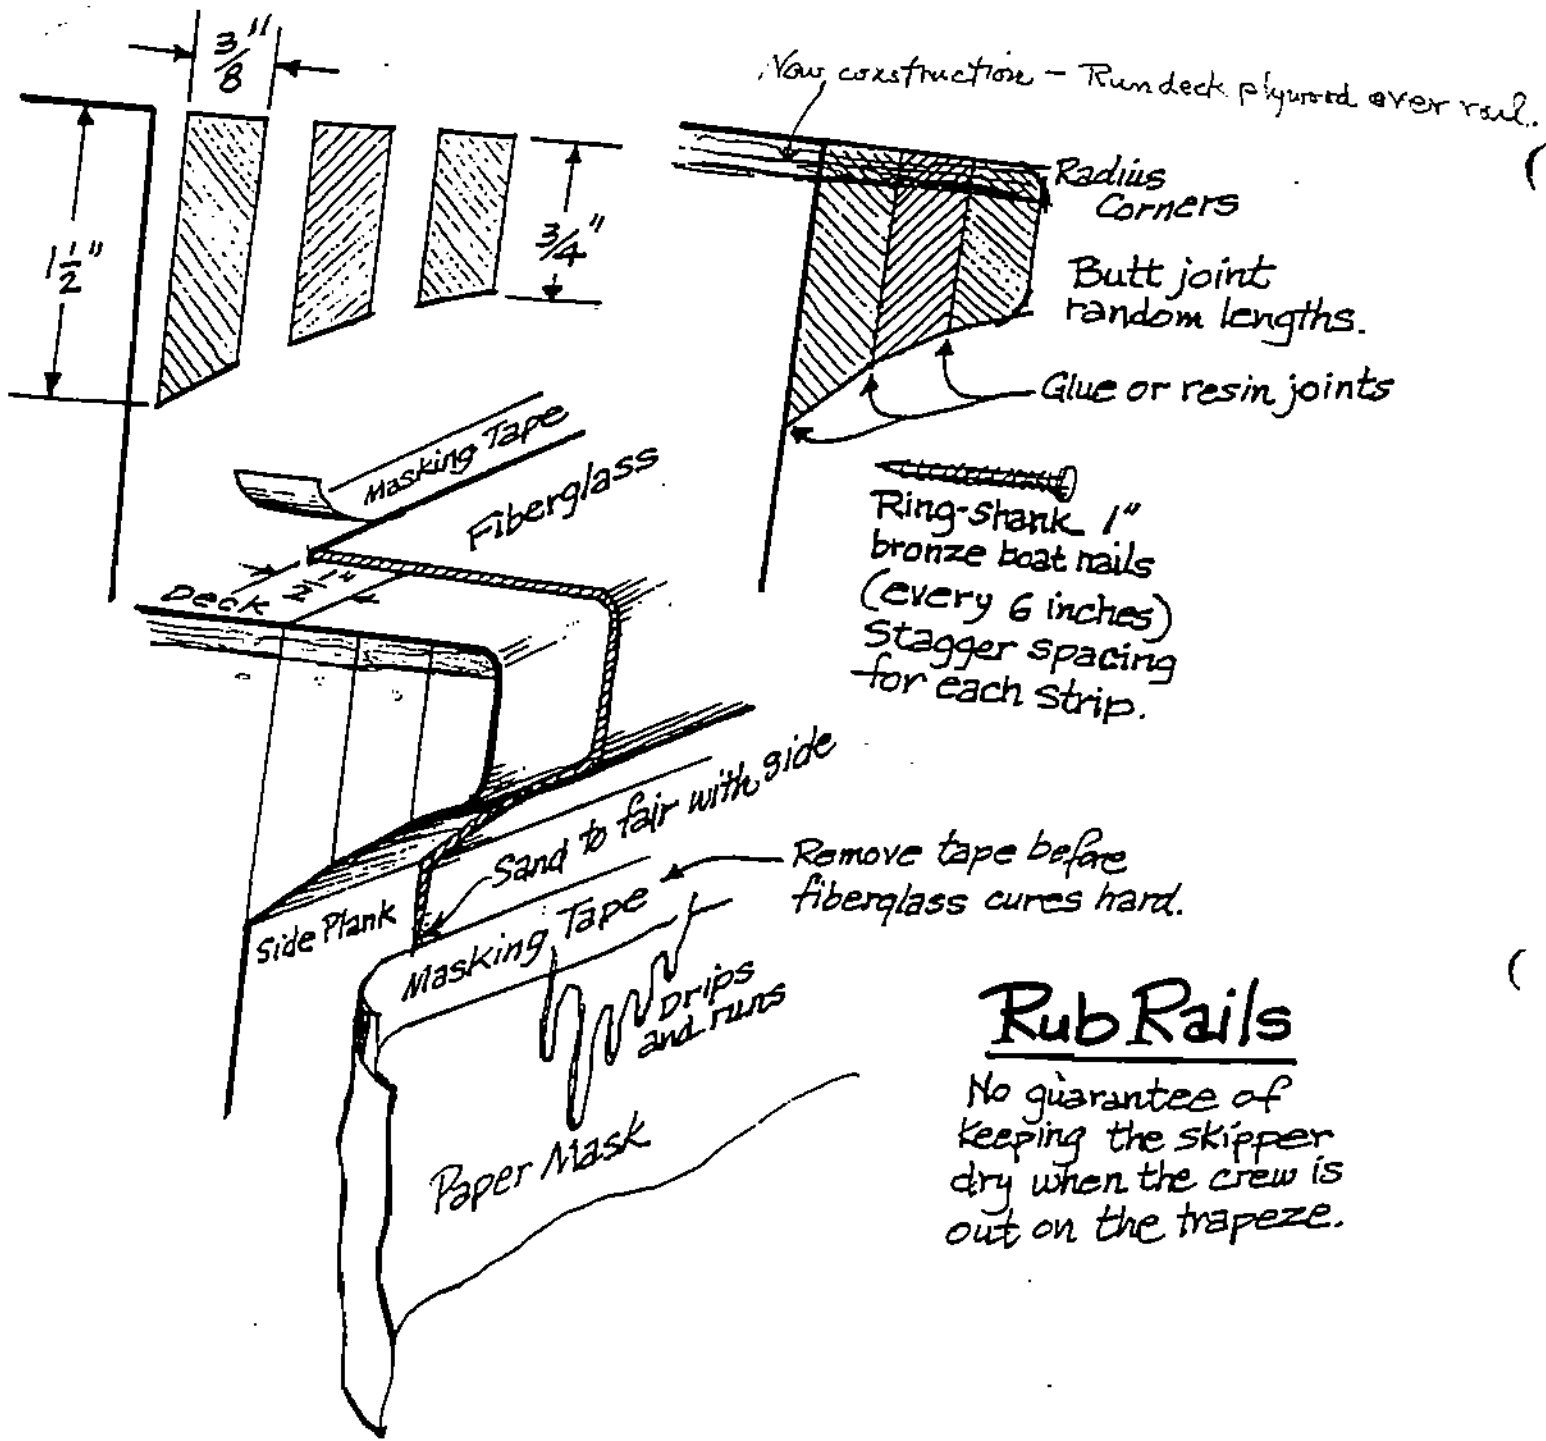 3/8"
New construction - Run deck plywood over rail.
1 1/2"
3/4"
Radius
Corners
Butt joint
random lengths.
Glue or resin joints
Masking Tape
Fiberglass
Ring-shank 1"
bronze boat nails
(every 6 inches)
Stagger spacing
for each strip.
Deck
1/2"
Sand to fair with side
Remove tape before
fiberglass cures hard.
Side Plank
Masking Tape
Drips
and runs
Paper Mask
Rub Rails
No guarantee of
keeping the skipper
dry when the crew is
out on the trapeze.